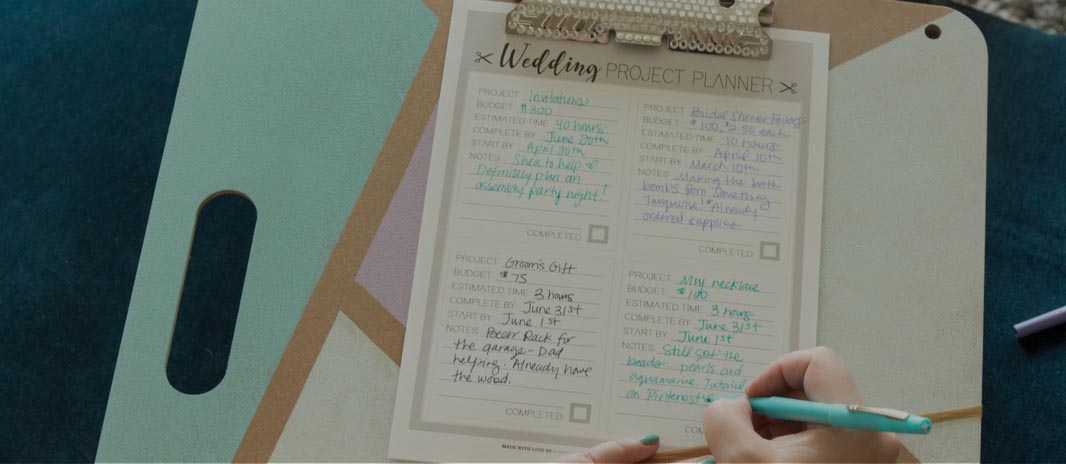 Wedding PROJECT PLANNER
PROJECT Invitations
BUDGET $300
ESTIMATED TIME 40 hours
COMPLETE BY June 20th
START BY April 20th
NOTES Shea to help
Definitely plan an
assembly party night!
COMPLETED
PROJECT Bridal Shower Favors
BUDGET $100, $2.50 each
ESTIMATED TIME 10 hours
COMPLETE BY April 10th
START BY March 10th
NOTES Making the bath
bombs from Something
Turquoise! *Already
ordered supplies
COMPLETED
PROJECT Groom's Gift
BUDGET $75
ESTIMATED TIME 3 hours
COMPLETE BY June 31st
START BY June 1st
NOTES Beer Rack for
the garage - Dad
helping. Already have
the wood.
COMPLETED
PROJECT My necklace
BUDGET $100
ESTIMATED TIME 3 hours
COMPLETE BY June 31st
START BY June 1st
NOTES Still get the
beads. pearls and
aquamarine. Tutorial
on Pinterest
MADE WITH LOVE BY